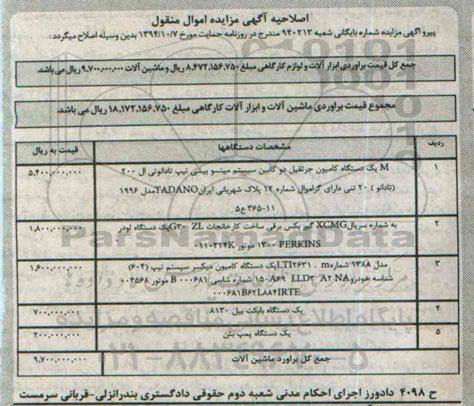 اصلاحیه آگهی مزایده اموال منقول
پیرو آگهی مزایده شماره بایگانی شعبه ۹۴۰۲۱۳ مندرج در روزنامه حمایت مورخ ۱۳۹۴/۱۰/۷ بدین وسیله اصلاح میگردد:
جمع کل قیمت براوردی ابزار آلات و لوازم کارگاهی مبلغ ۸،۴۷۲،۱۵۶،۷۵۰ ریال و ماشین آلات ۹،۷۰۰،۰۰۰،۰۰۰ ریال می باشد.
مجموع قیمت براوردی ماشین آلات و ابزار آلات کارگاهی مبلغ ۱۸،۱۷۲،۱۵۶،۷۵۰ ریال می باشد.
ردیف مشخصات دستگاهها قیمت به ریال
۱ M یک دستگاه کامیون جرثقیل دو کابین سیستم میتسو بیشی تیپ تادانوتی ال ۲۰۰ ۵،۴۰۰،۰۰۰،۰۰۰
(تادانو) ۲۰ تنی دارای گراموال شماره ۱۲ پلاک شهربانی ایران TADANO مدل ۱۹۹۶
۳۶۵-۱۱ ع۵
۲ به شماره سریال XCMG گیر بکس برقی ساخت کارخانجات G۳۰ ZL یک دستگاه لودر ۱،۸۰۰،۰۰۰،۰۰۰
PERKINS ۱۳۰۰ موتور ۰۱۱۰۳۲۴K
۳ مدل ۱۳۸۸ شماره LTI۲۶۳۱۰m یک دستگاه کامیون میکسر سیستم تیپ (۶۰۴) ۱،۶۰۰،۰۰۰،۰۰۰
شناسه خودرو ۱۵۰A۶۹ LLD۳ A۲ NA شماره شاسی ۰۰۰۶۸۱ B موتور ۰۰۴۵۶۸
۰۰۰۶۸۱B۶۲LA۸۴IRTE
۴ یک دستگاه بابکت بیل ۸۱۳۰ ۷۰۰،۰۰۰،۰۰۰
۵ یک دستگاه پمپ بتن ۲۰۰،۰۰۰،۰۰۰
جمع کل براورد ماشین آلات ۹،۷۰۰،۰۰۰،۰۰۰
ح ۴۰۹۸ دادورز اجرای احکام مدنی شعبه دوم حقوقی دادگستری بندرانزلی-قربانی سرمست